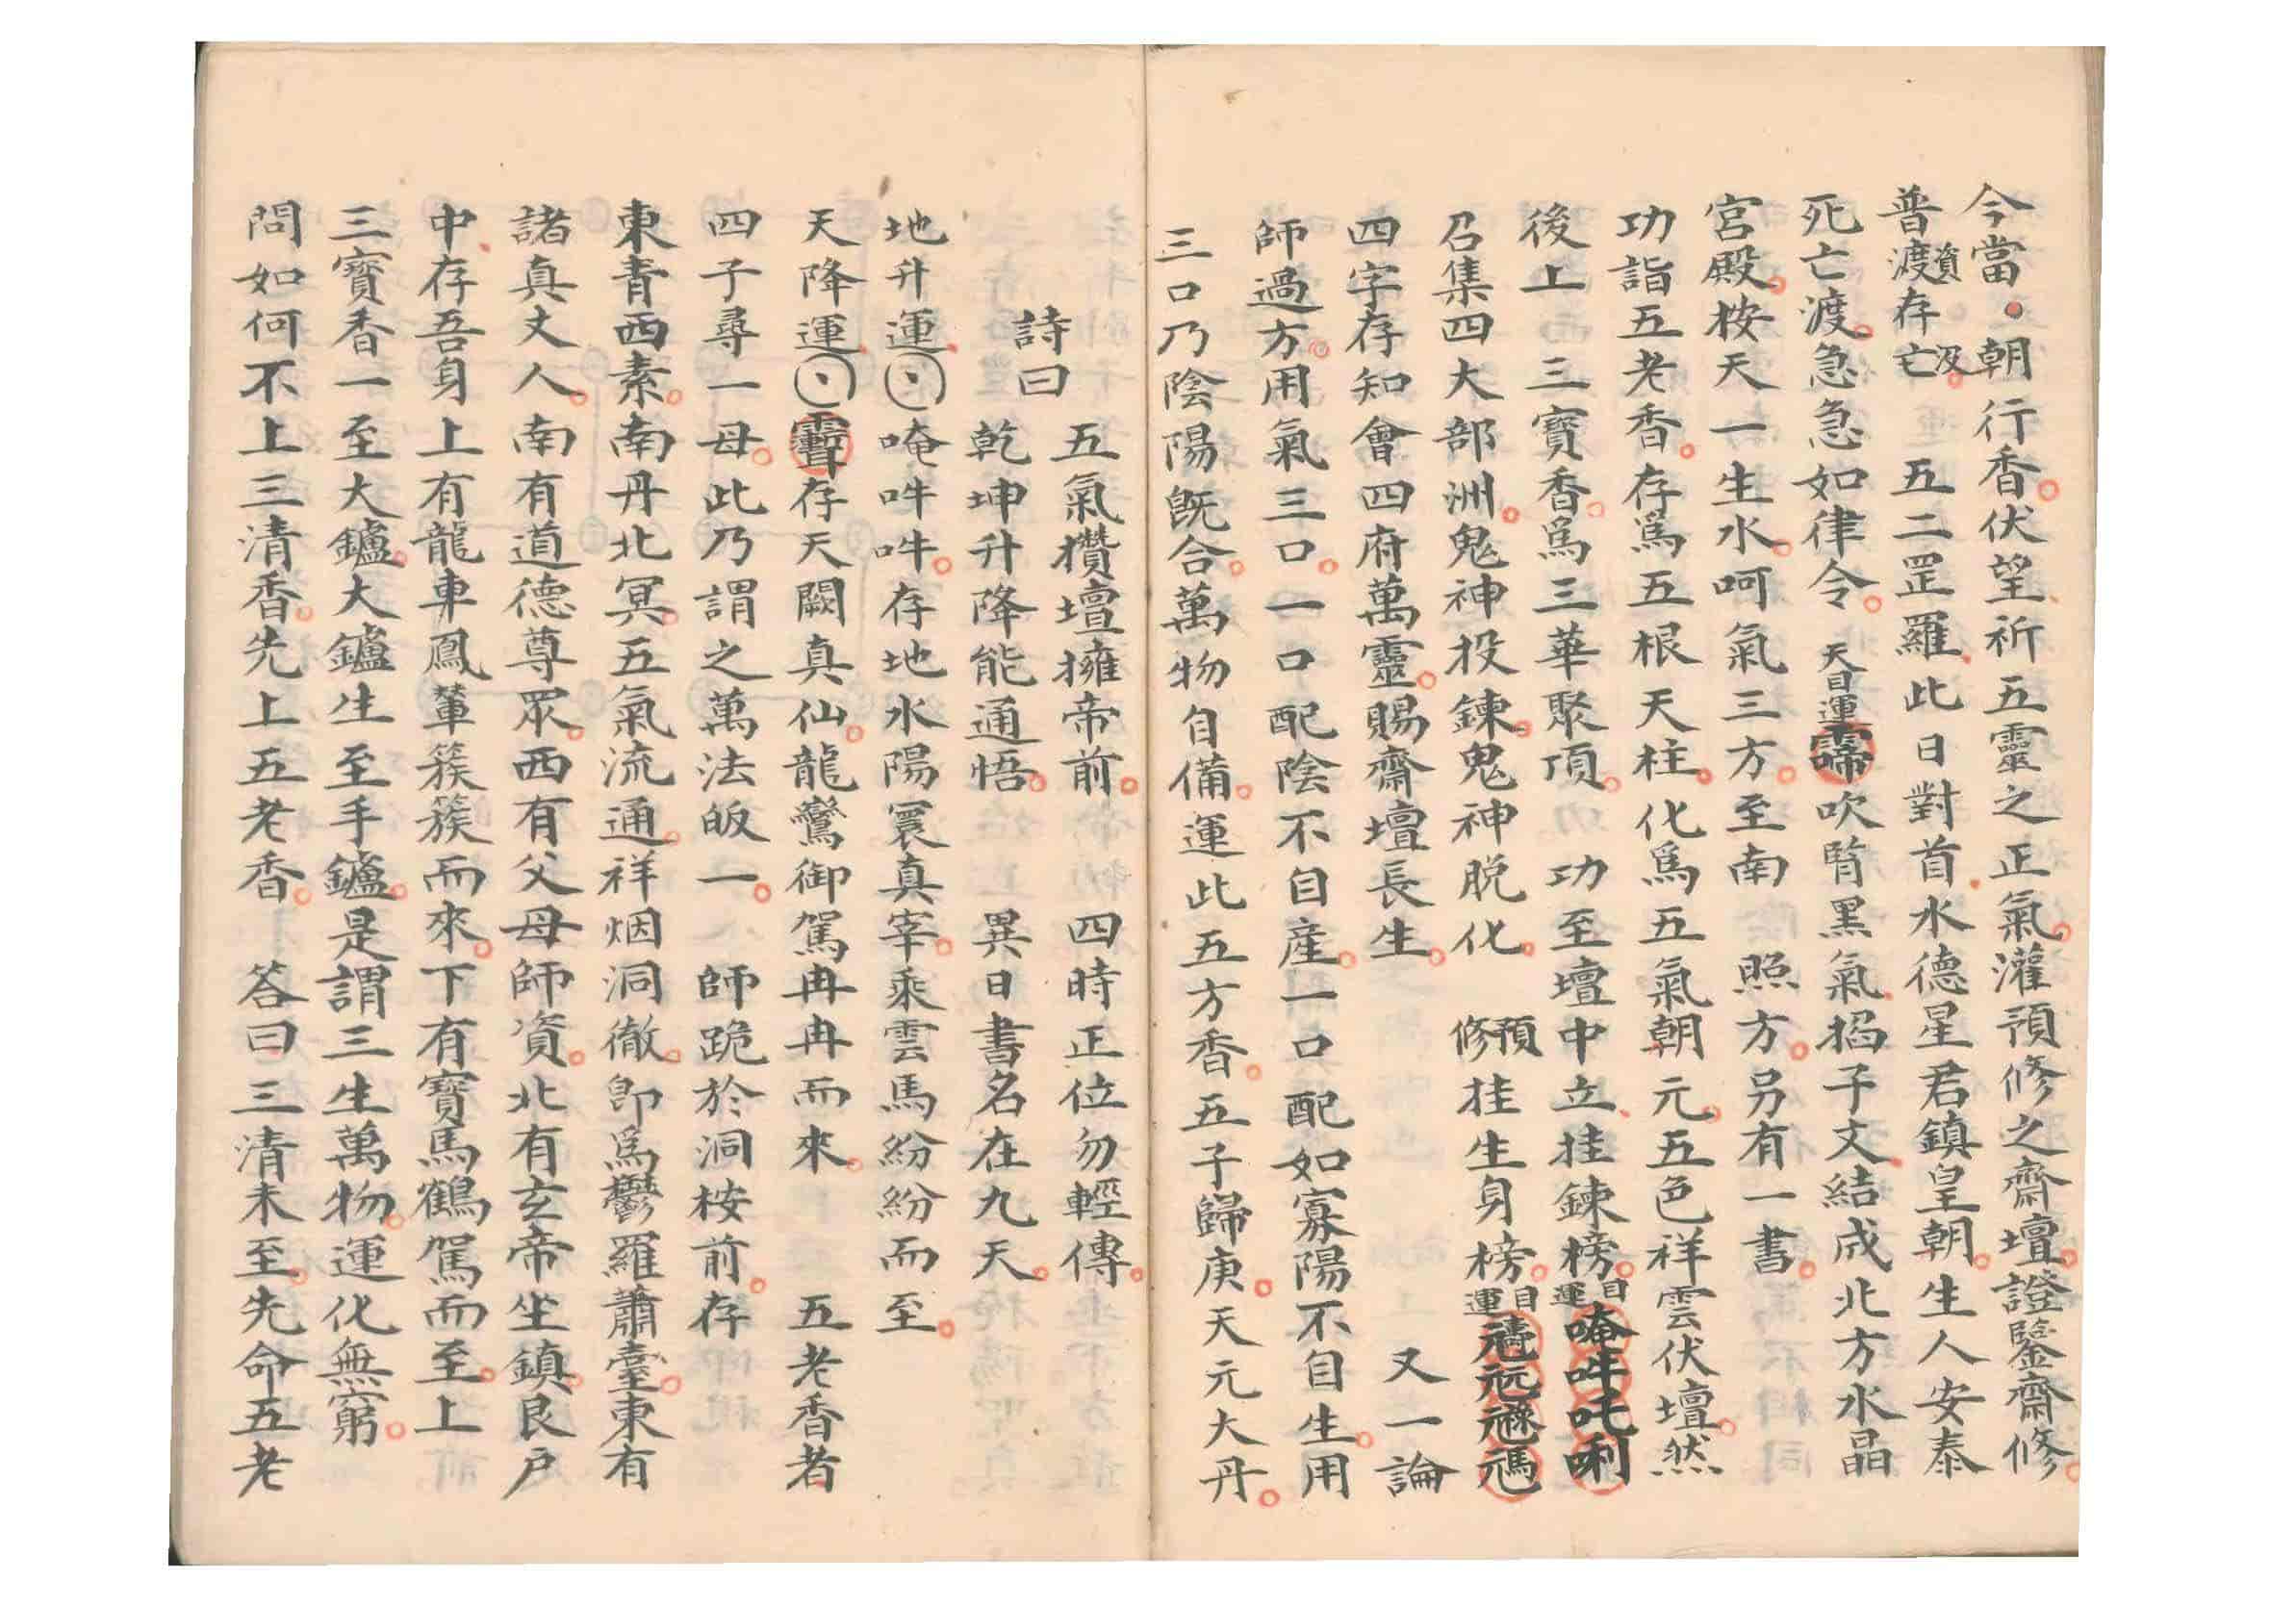 今當。朝行香。伏望祈五靈之正氣。灌預修之齋壇。證鑒齋修。
普渡資存亡及。五二罡羅。此日對首水德星君鎮皇朝。生人安泰
死亡渡。急急如律令。天目運吹腎黑氣。掐子文。結成北方水晶
宮殿。桉天一生水。呵氣三方。至南 照方。另有一書。
功詣五老香。存爲五根天柱。化爲五氣朝元。五色祥雲伏壇。然
後上三寶香。爲三華聚頂。 功至壇中立。挂鍊榜。目運唵吽吒唎
召集四大部洲。鬼神投鍊。鬼神脱化。 預修挂生身榜。目運
四字存知會四府萬靈。賜齋壇長生。 又一論
師過方。用氣三口。一口配陰不自産。一口配如寡陽不自生。用
三口乃陰陽既合。萬物自備。運此五方香。五子歸庚。天元大丹。
五氣攢壇擁帝前。 四時正位勿輕傳。
詩曰
乾坤升降能通悟。 異日書名在九天。
地升運唵吽吽。存地水陽寰真宰。乘雲馬紛紛而至。
天降運存天闕真仙。龍鸞御駕冉冉而來。 五老香者
四子尋一母。此乃謂之萬法皈一。 師跪於洞桉前。存
東青西素。南丹北冥。五氣流通。祥烟洞徹。即爲鬱羅蕭臺。東有
諸真丈人。南有道德尊眾。西有父母師資。北有玄帝坐鎮。艮户
中。存吾身上有龍車鳳輦簇簇而來。下有寶馬鶴駕而至。上
三寶香一至大鑪。大鑪生至手鑪。是謂三生萬物。運化無窮。
問如何不上三清香。先上五老香。 答曰三清未至。先命五老